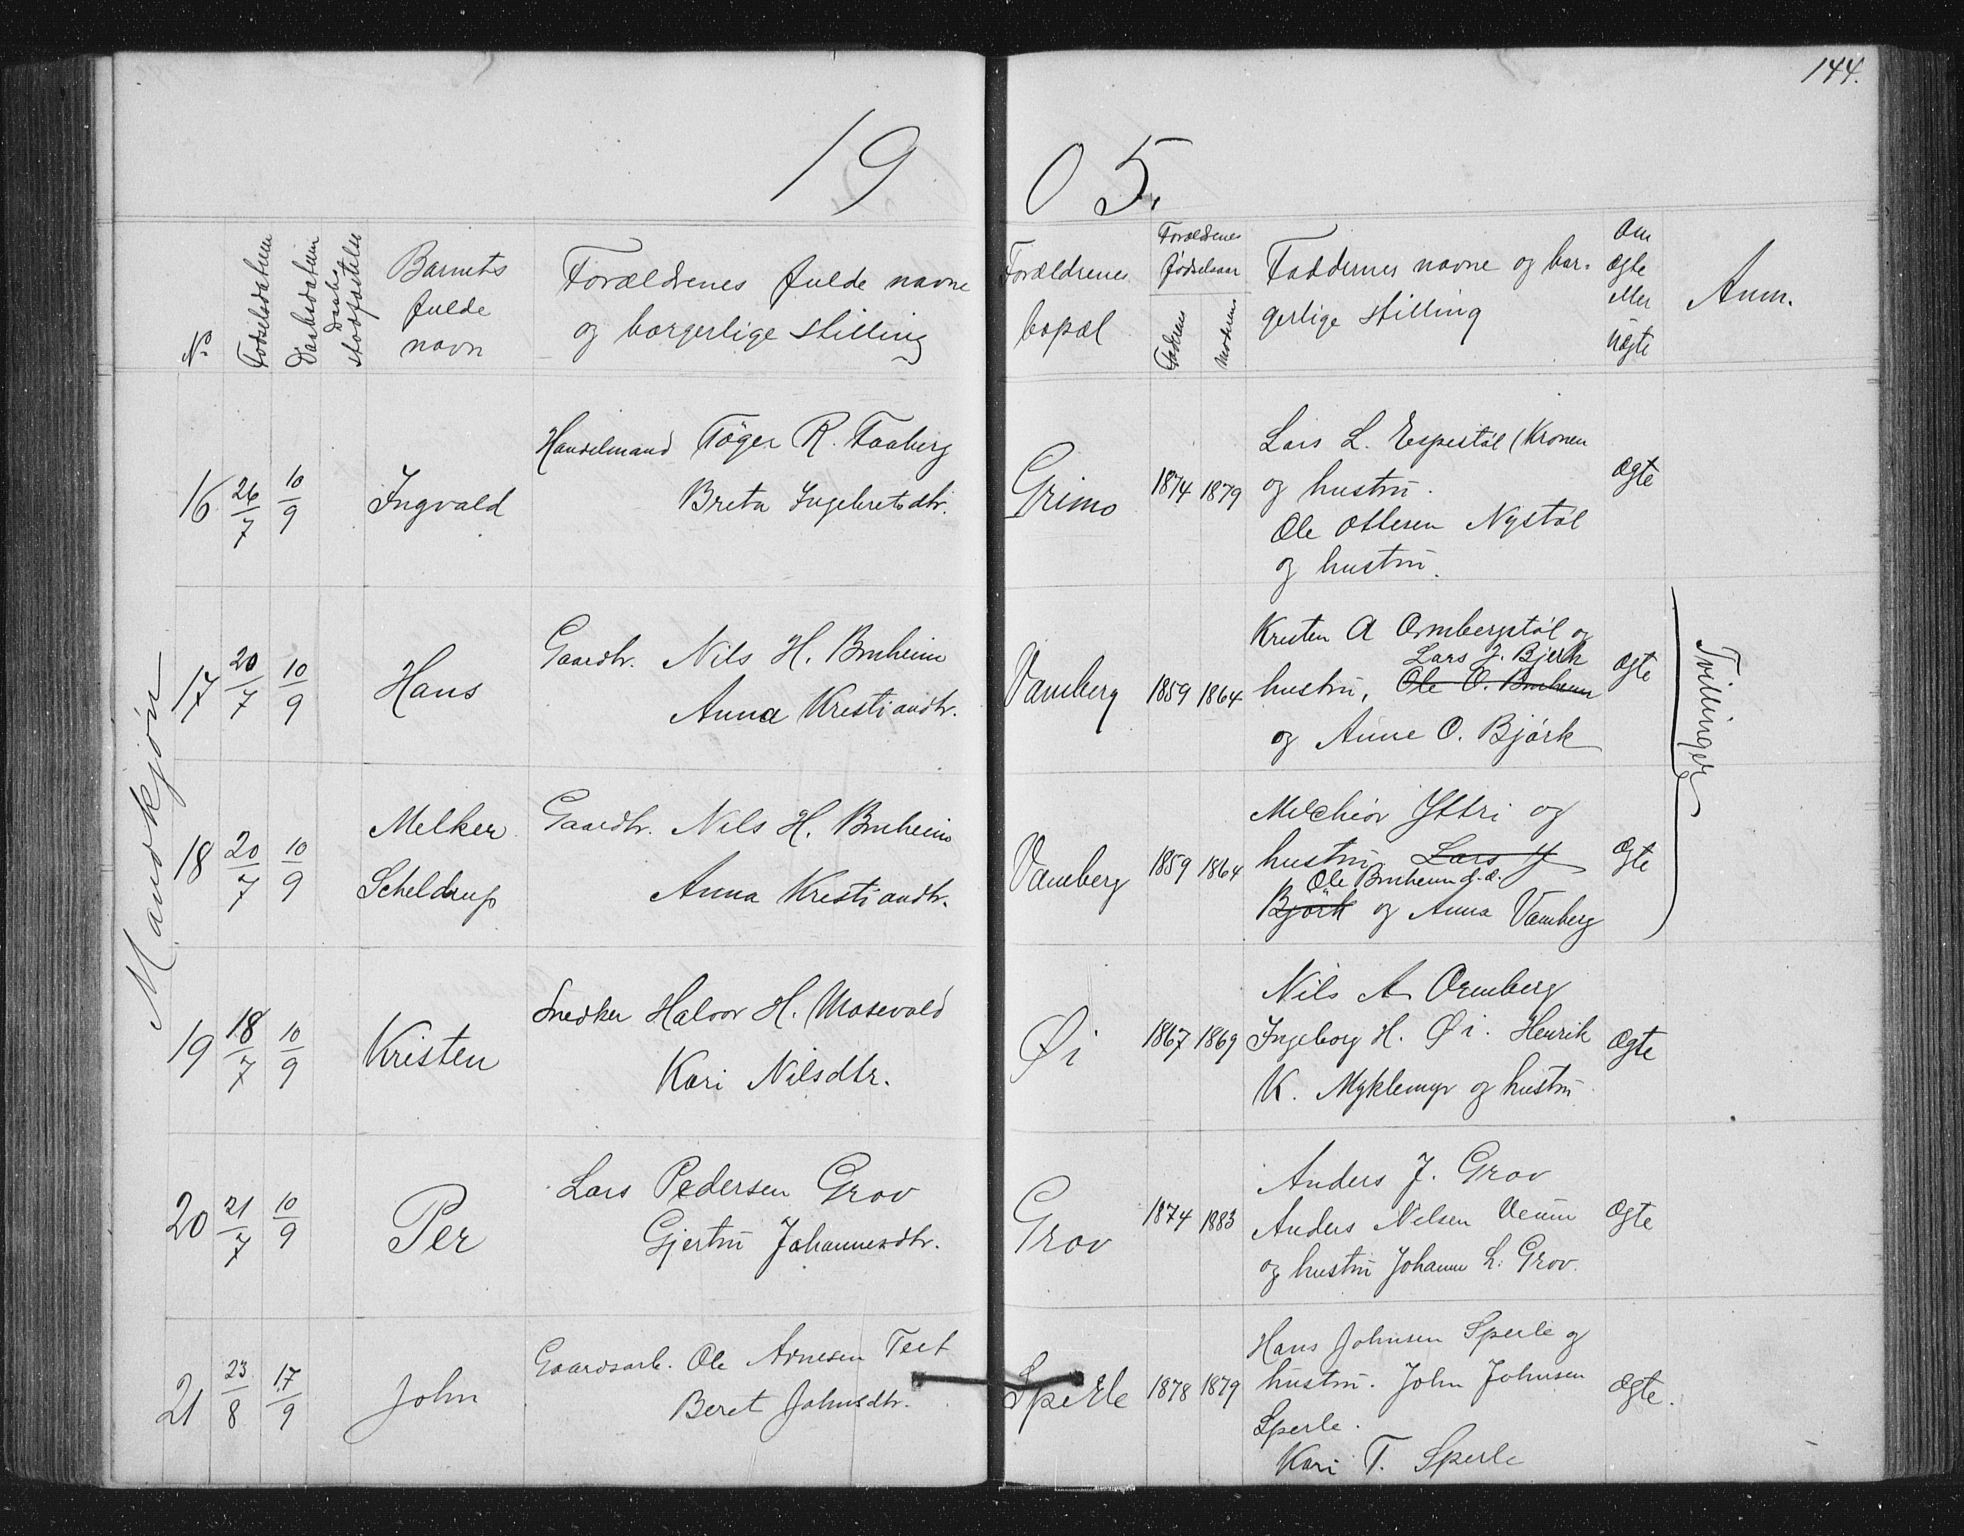 144.
19 05.
Mandkjøn
No
Fødselsdatum
Daabsdatum
Daabs
stadfæstelse
Barnets
fulde
navn
Forældrenes fulde navne
og borgerlige stilling
Forældrenes
bopæl
Forældrenes
fødselsaar
Faderens
Moderens
Faddernes navne og bor-
gerlige stilling
Om
ægte
eller
uægte
Anm.
16 26/7 10/9 Ingvald
Handelsmand Tøger R. Faaberg
Breta Ingebretsdtr.
Grimo 1874 1879
Lars L. Espestøl (Kronen
og hustru.
Ole Ottesen Nystøl
og hustru.
Ægte
17 20/7 10/9 Hans
Gaardbr. Nils H. Bruheim
Anna Kristiandtr.
Vamberg 1859 1864
Kristen A Ormbergstøl og
Lars J. Bjørk
hustru, Ole O. Bruheim
og Anne O. Bjørk
Ægte
Tvillinger
18 20/7 10/9 Melker
Scheldrup
Gaardbr. Nils H. Bruheim
Anna Kristiandtr.
Vamberg 1859 1864
Melchior Yttri og
hustru, Lars J
Ole Bruheim d.æ.
Bjørk og Anna Vamberg
Ægte
19 18/7 10/9 Kristen
Snedker Halvor H. Mosevold
Kari Nilsdtr.
Øi 1867 1869
Nils A Ormberg
Ingeborg H. Øi. Henrik
K. Myklemyr og hustru
Ægte
20 21/7 10/9 Per
Lars Pedersen Grov
Gjertru Johannesdtr.
Grov 1874 1883
Anders J. Grov
Anders Nilsen Venum
og hustru Johanne L. Grov.
Ægte
21 23/8 17/9 John
Gaardsarb. Ole Arnesen Teet
Beret Johnsdtr.
Sperle 1878 1879
Hans Johnsen Sperle og
hustru. John Johnsen
Sperle.
Kari T. Sperle
Ægte.